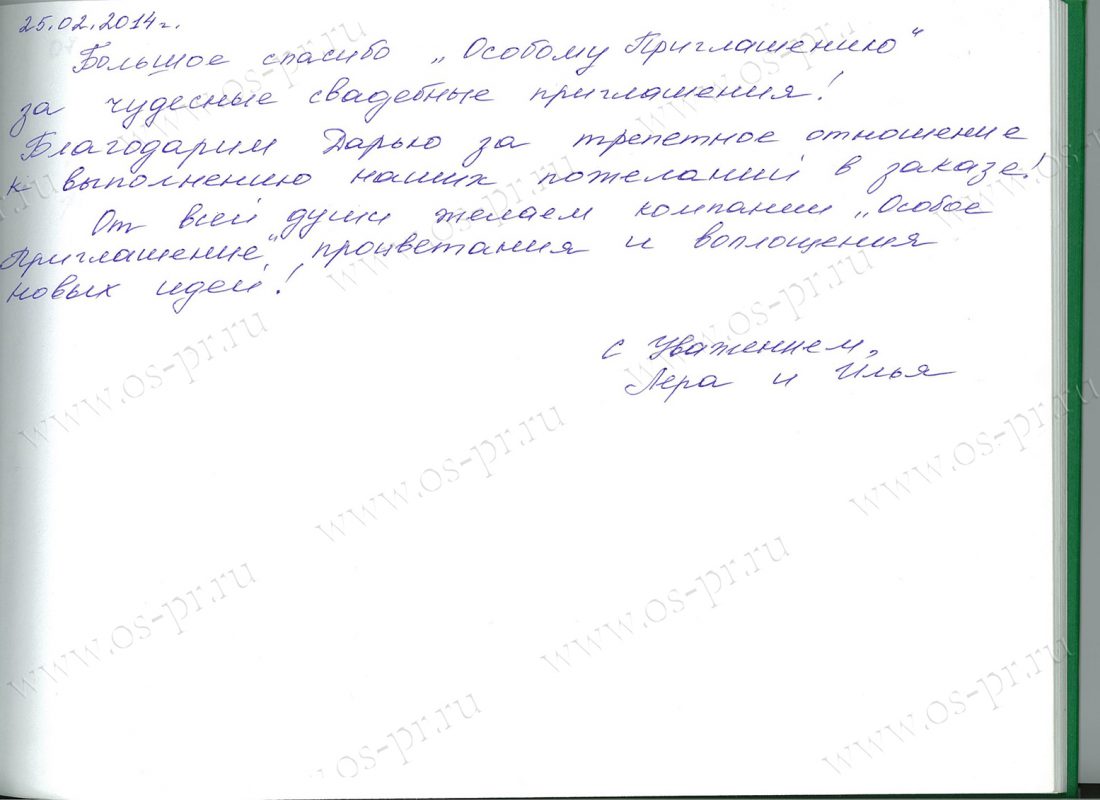 25.02.2014г.
Большое спасибо „Особому Приглашению“
за чудесные свадебные приглашения!
Благодарим Дарью за трепетное отношение
к выполнению наших пожеланий в заказе!
От всей души желаем компании „Особое
Приглашение“ процветания и воплощения
новых идей!
с Уважением,
Лера и Илья
www.os-pr.ru
www.os-pr.ru
www.os-pr.ru
www.os-pr.ru
www.os-pr.ru
www.os-pr.ru
www.os-pr.ru
www.os-pr.ru
www.os-pr.ru